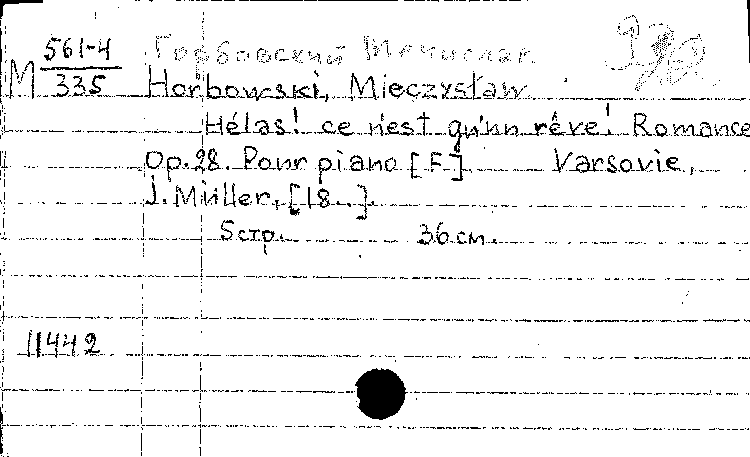 561-4 Горбовский Мечислав
М 335 Horbowski, Mieczysław.
Hélas! ce n'est qu'un rêve! Romance
Op. 28. Pour piano [F]. Varsovie,
J. Müller, [18..].
5 стр. 36 см.
11442